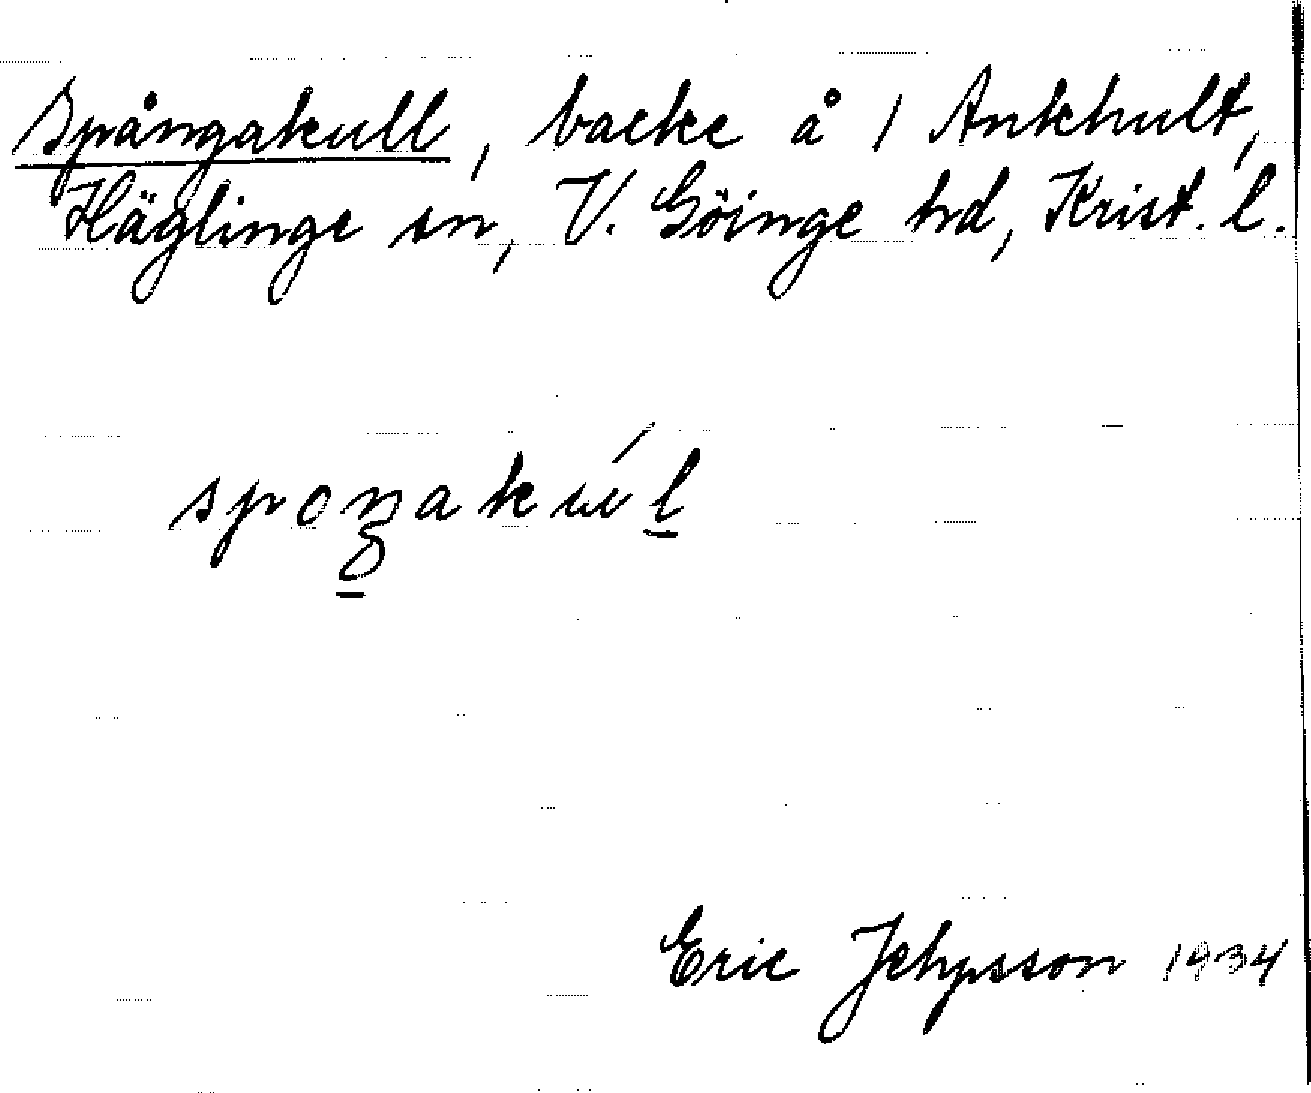 Spångakull, backe å 1 Ankhult,
Häglinge sn, V. Göinge hd, Krist. l.
spoŋakúl
Eric Jehpsson 1934